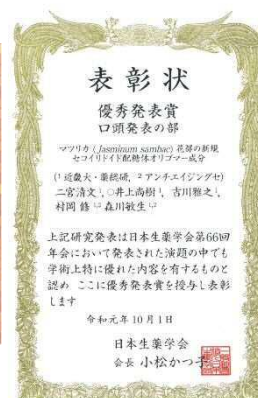 表彰状
優秀発表賞
口頭発表の部
マツリカ (Jasminum sambac) 花部の新規
セコイリドイド配糖体オリゴマー成分
(¹近畿大・薬総研, ²アンチエイジングセ)
二宮清文¹, ○井上尚樹¹, 吉川雅之¹,
村岡 修¹,² 森川敏生¹,²
上記研究発表は日本生薬学会第66回
年会において発表された演題の中でも
学術上特に優れた内容を有するものと
認め ここに優秀発表賞を授与し表彰
します
令和元年10月1日
日本生薬学会
会長 小松かつ子